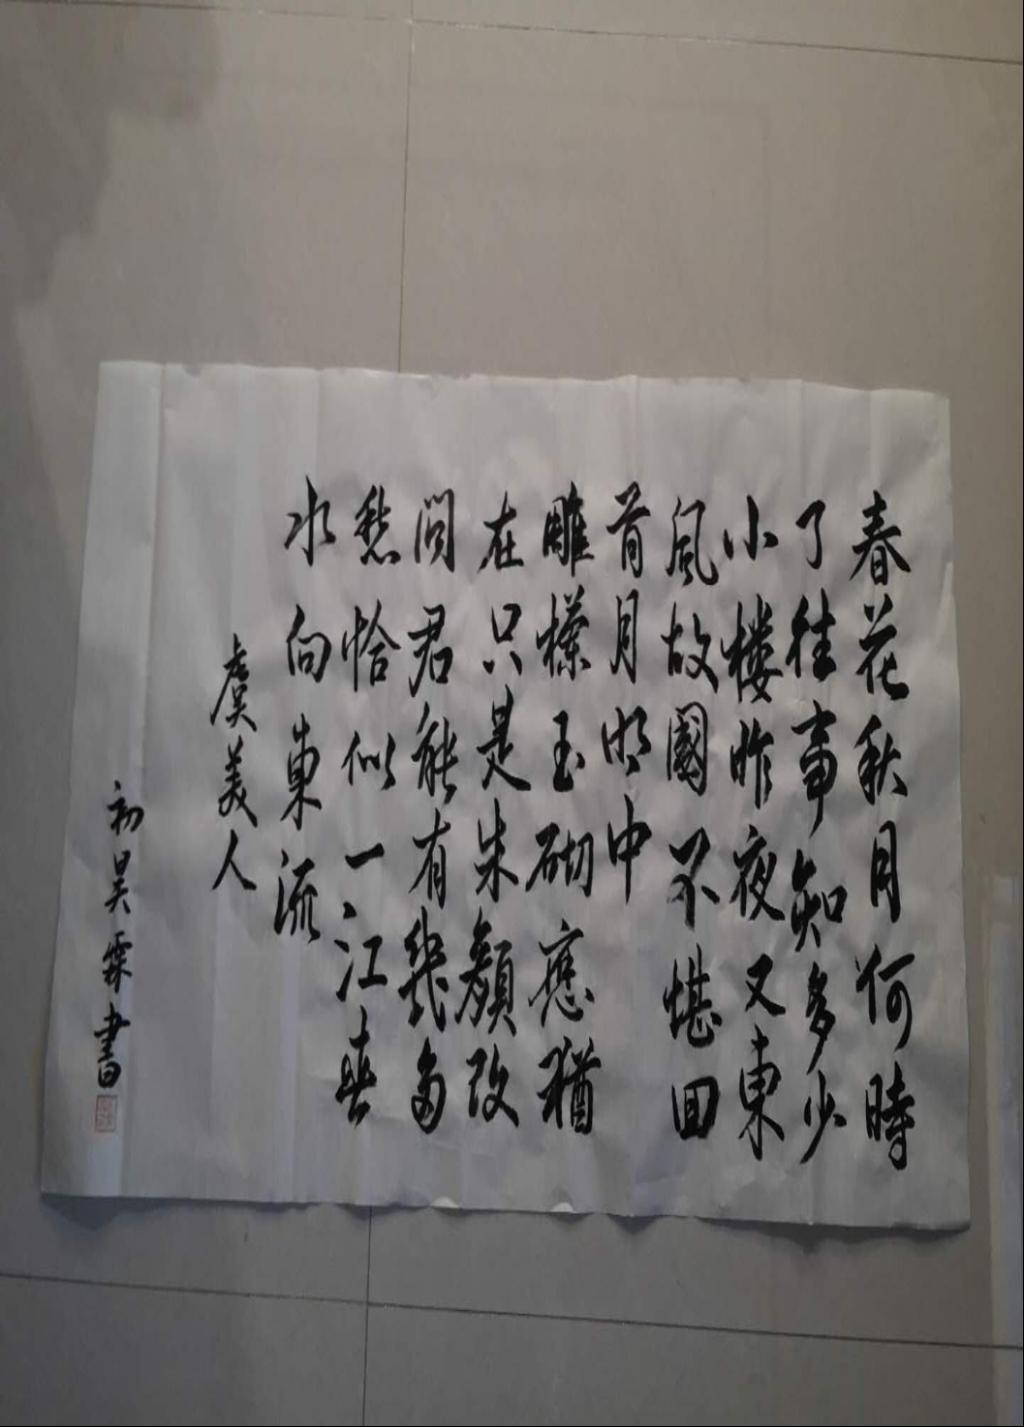 春花秋月何時
了往事知多少
小楼昨夜又東
風故國不堪回
首月明中
雕欄玉砌應猶
在只是朱顏改
問君能有幾多
愁恰似一江春
水向東流
虞美人
初昊霖書